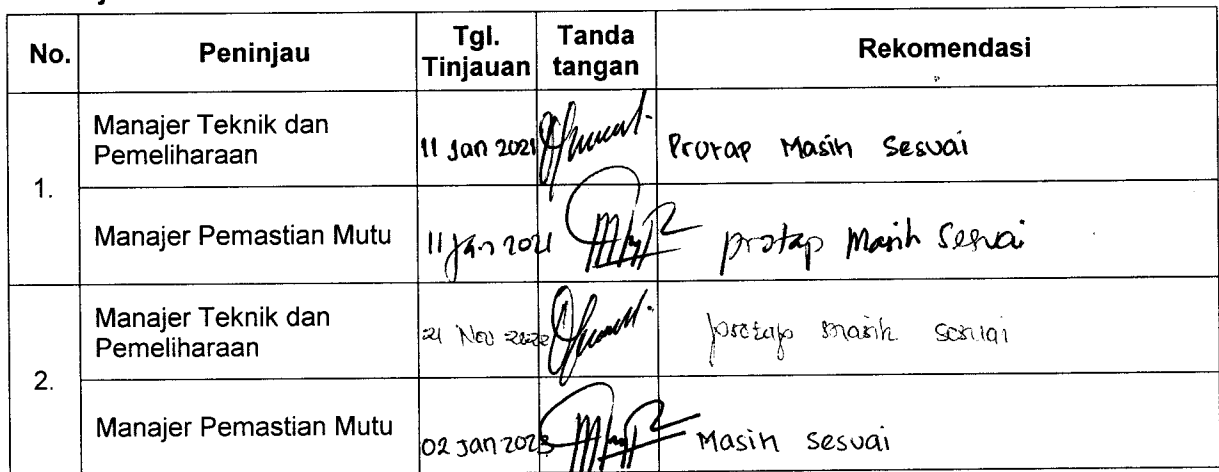 No. Peninjau Tgl. Tinjauan Tanda tangan Rekomendasi
1.
Manajer Teknik dan Pemeliharaan 11 Jan 2021 Protap Masih Sesuai
Manajer Pemastian Mutu 11 Jan 2021 protap Masih Sesuai
2.
Manajer Teknik dan Pemeliharaan 21 Nov 2022 protap masih sesuai
Manajer Pemastian Mutu 02 Jan 2023 Masih sesuai